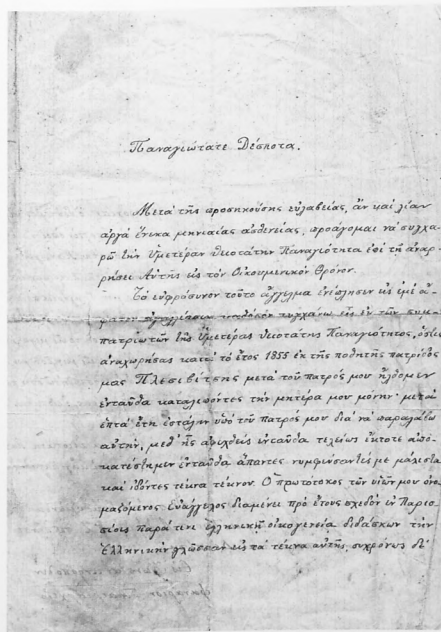 Παναγιώτατε Δέσποτα.
Μετὰ τῆς προσηκούσης εὐλαβείας, ἂν καὶ λίαν
ἀργὰ ἕνεκα μηνιαίας ἀσθενείας, προάγομαι νὰ συγχα-
ρῶ τὴν Ὑμετέραν Θειοτάτην Παναγιότητα ἐπὶ τῇ ἀναρ-
ρήσει Αὐτῆς εἰς τὸν Οἰκουμενικὸν Θρόνον.
Τὸ εὐφρόσυνον τοῦτο ἄγγελμα ἐνέπλησεν εἰς ἐμὲ
ἀγαλλίασιν καθόσον τυγχάνω εἷς ἐκ τῶν συμ-
πατριωτῶν τῆς Ὑμετέρας Θειοτάτης Παναγιότητος, ὅστις
ἀναχωρήσας κατὰ τὸ ἔτος 1855 ἐκ τῆς ποθητῆς πατρίδος
μας Πλεσιβίτσης μετὰ τοῦ πατρός μου ἤλθομεν
ἐνταῦθα καταλιπόντες τὴν μητέρα μου μόνην· μετὰ
ἑπτὰ ἔτη ἐστάλην ὑπὸ τοῦ πατρός μου διὰ νὰ παραλάβω
αὐτήν, μεθ' ἧς ἀφιχθεὶς ἐνταῦθα τελείως ἔκτοτε ἀπο-
κατέστημεν ἐνταῦθα ἅπαντες νυμφευσαντές με μάλιστα
καὶ ἰδόντες τέκνα τέκνων. Ὁ πρωτότοκος τῶν υἱῶν μου ὀνο-
μαζόμενος Εὐάγγελος διαμένει πρὸ ἔτους σχεδὸν ἐν Παρι-
σίοις παρά τινι ἑλληνικῇ οἰκογενείᾳ διδάσκων τὴν
Ἑλληνικὴν γλῶσσαν εἰς τὰ τέκνα αὐτῆς, συγχρόνως δὲ